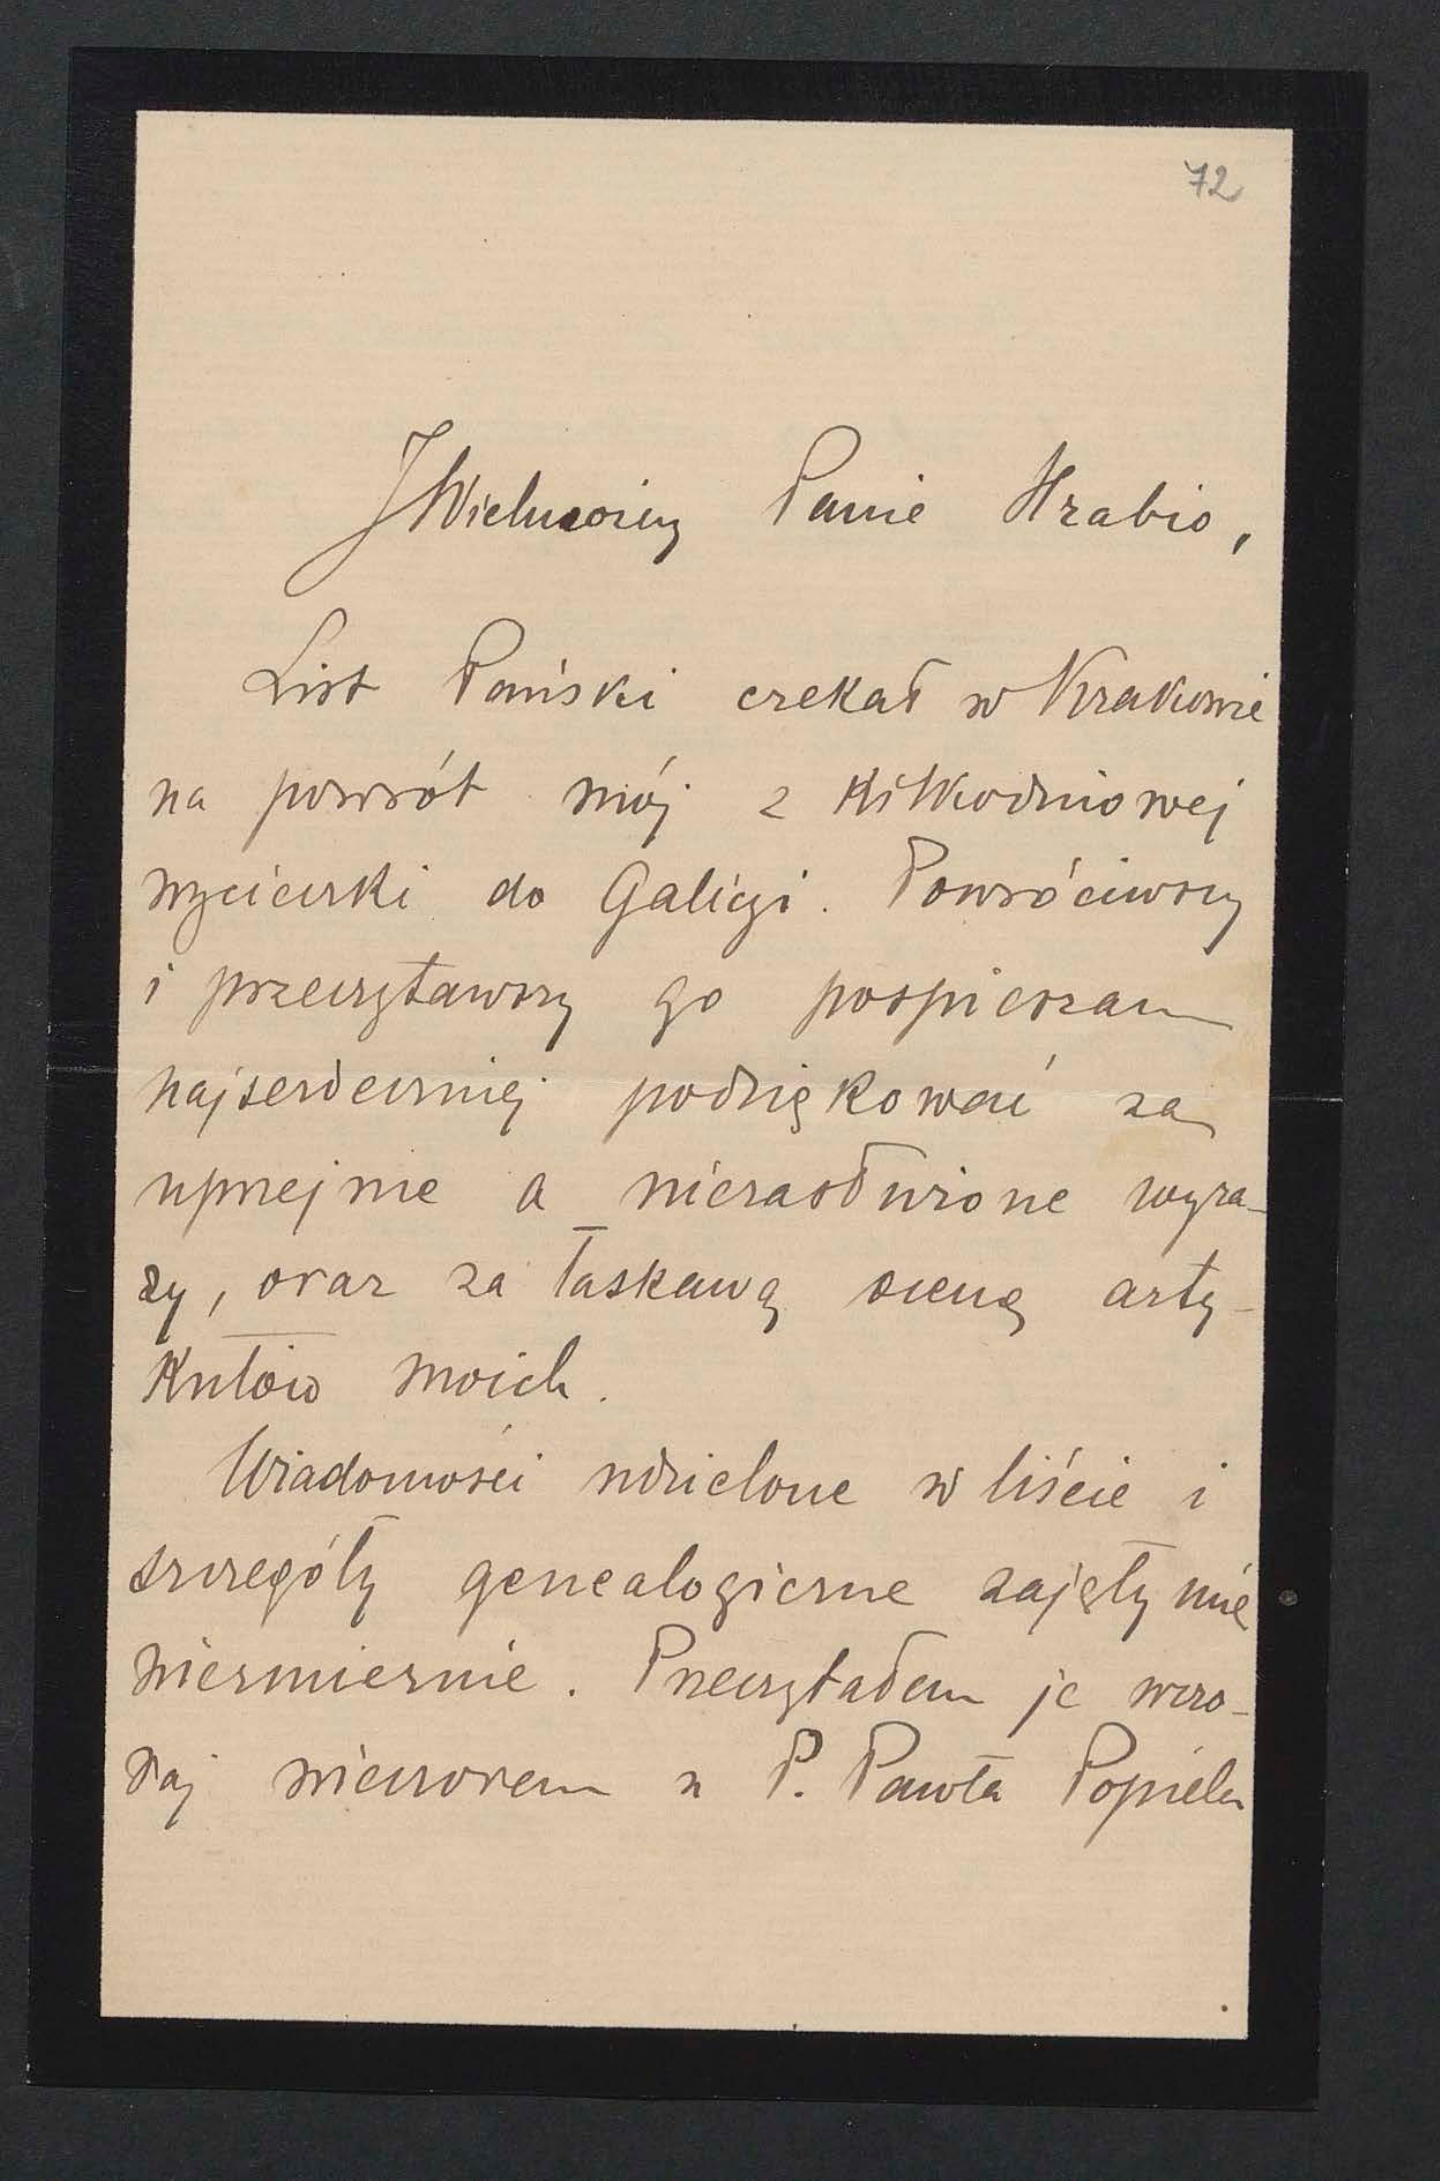 72
JWielmożny Panie Hrabio,
List Pański czekał w Krakowie
na powrót mój z kilkodniowej
wycieczki do Galicyi. Powróciwszy
i przeczytawszy go pospieszam
najserdeczniej podziękować za
uprzejme a niezasłużone wyra-
zy, oraz za łaskawą ocenę arty-
kułów moich.
Wiadomości udzielone w liście i
szczegóły genealogiczne zajęły mię
niezmiernie. Przeczytałem je wczo-
raj wieczorem u P. Pawła Popiela